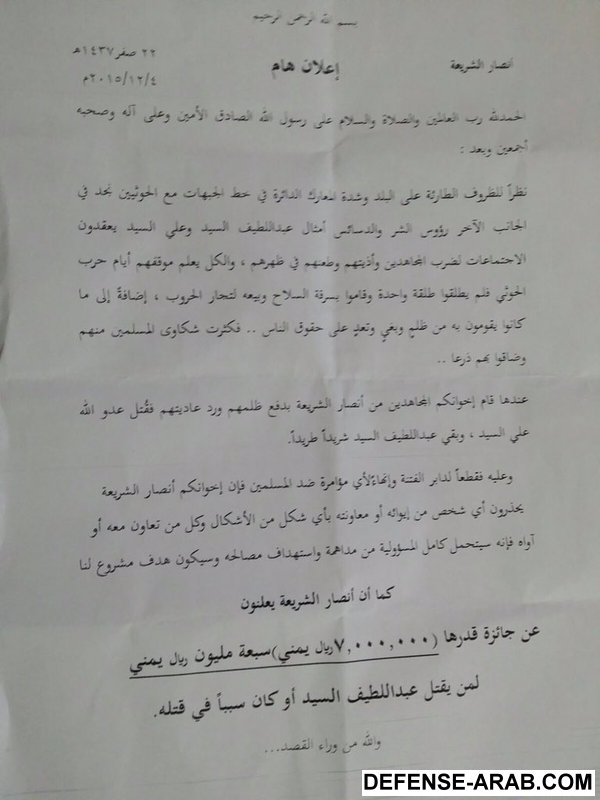 بسم الله الرحمن الرحيم
أنصار الشريعة
إعلان هام
٢٢ صفر ١٤٣٧هـ
٢٠١٥/١٢/٤م
الحمدلله رب العالمين والصلاة والسلام على رسول الله الصادق الأمين وعلى آله وصحبه
أجمعين وبعد :
نظراً للظروف الطارئة على البلد وشدة المعارك الدائرة في خط الجبهات مع الحوثيين نجد في
الجانب الآخر رؤوس الشر والدسائس أمثال عبداللطيف السيد وعلي السيد يعقدون
الاجتماعات لضرب المجاهدين وأذيتهم وطعنهم في ظهرهم ، والكل يعلم موقفهم أيام حرب
الحوثي فلم يطلقوا طلقة واحدة وقاموا بسرقة السلاح وبيعه لتجار الحروب ، إضافةً إلى ما
كانوا يقومون به من ظلمٍ وبغيٍ وتعدٍ على حقوق الناس .. فكثرت شكاوى المسلمين منهم
وضاقوا بهم ذرعا ..
عندها قام إخوانكم المجاهدين من أنصار الشريعة بدفع ظلمهم ورد عاديتهم فقُتل عدو الله
علي السيد ، وبقي عبداللطيف السيد شريداً طريداً.
وعليه فقطعاً لدابر الفتنة وإنهاءً لأي مؤامرة ضد المسلمين فإن إخوانكم أنصار الشريعة
يحذرون أي شخص من إيوائه أو معاونته بأي شكل من الأشكال وكل من تعاون معه أو
آواه فإنه سيتحمل كامل المسؤولية من مداهمة واستهداف مصالحه وسيكون هدف مشروع لنا
كما أن أنصار الشريعة يعلنون
عن جائزة قدرها (٧,٠٠٠,٠٠٠ ريال يمني) سبعة مليون ريال يمني
لمن يقتل عبداللطيف السيد أو كان سبباً في قتله.
والله من وراء القصد...
DEFENSE-ARAB.COM